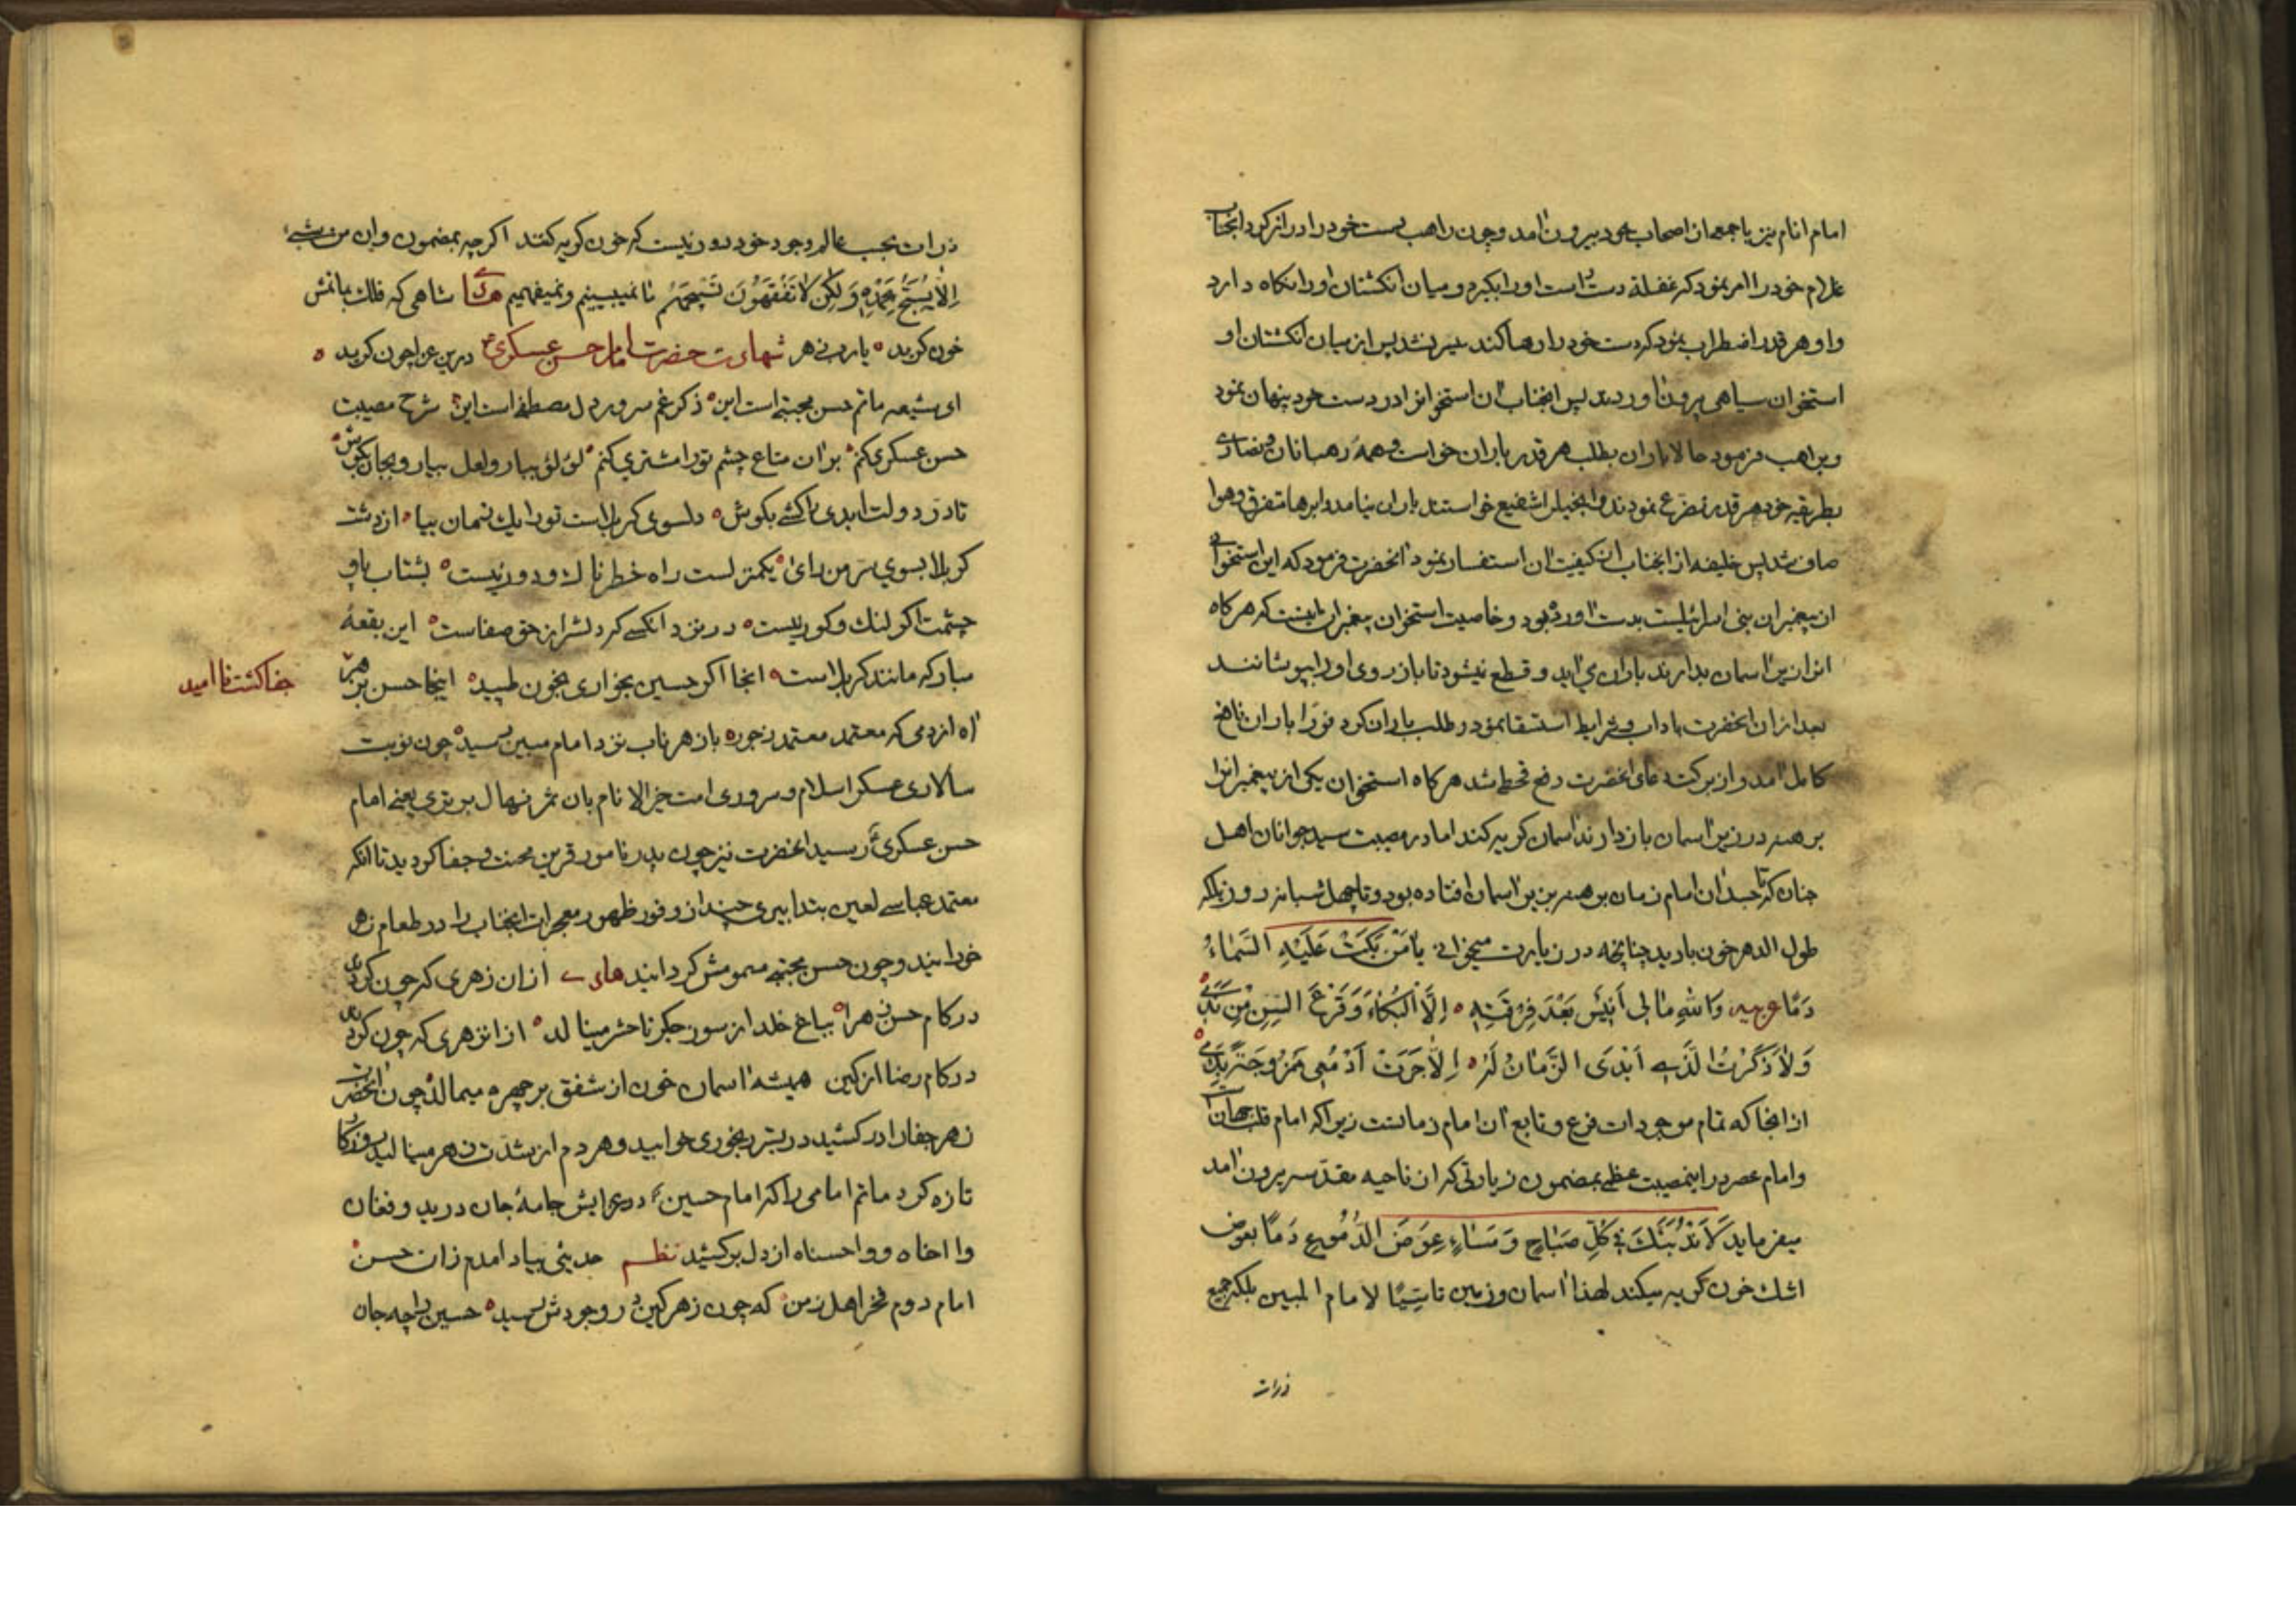 امام انام نیز با جمعی از اصحاب خود بیرون آمد و چون راهب دست خود را دراز کرد آنجناب
غلام خود را امر نمود که دست راست او را بگیرد و میان انکشتان او را نکاه دارد
و او هر قدر اضطراب نمود که دست خود را رها کند میسر نشد پس از میان انکشتان او
استخوان سیاهی بیرون آوردند پس آنجناب آن استخوانرا در دست خود پنهان نمود
و براهب فرمود حالا باران بطلب هر قدر باران خواست و همه رهبانان و نصاری
بطریقه خود هر قدر تضرع نمودند و انجیل را شفیع خواستند باران نیامد و ابرها متفرق و هوا
صاف شد پس خلیفه از آنجناب از کیفیت آن استفسار نمود آنحضرت فرمود که این استخوان
از پیغمبران بنی اسرائیلست بدست آورده بود و خاصیت استخوان پیغمبران اینست که هرکاه
انرا زیر آسمان بدارند باران می آید و قطع نیشود تا باز روی او را بپوشانند
بعد از آن آنحضرت باداب و شرایط استسقا نمود و طلب باران کرد فورا باران نافع
کامل آمد و از برکت دعای آنحضرت رفع قحط شد هرکاه استخوان یکی از پیغمبرانرا
برهنه در زیر آسمان باز دارند آسمان کریه کند اما در مصیبت سید جوانان اهل
جنان که تا جسد آن امام زمان برهنه بر زیر آسمان افتاده بود و تا چهل شبانه روز بلکه
طول الدهر خون بارید چنانچه در زیارت میخوانی یا مَنْ بَکَتْ عَلَیْهِ السَّمٰاءُ
دَمًا عربیه وَاللهِ مٰا لی أَنیسٌ بَعْدَ فِرْقَتِهِ إِلَّا الْبُکٰاءُ وَ قَرْعَ السِنِ مِنْ نَدَمی
وَلٰا ذَکَرْتُ الَّذی أَبْدَی الزَّمٰانُ لَهُ إِلّٰا جَرَتْ أَدْمُعی مَمْزُوجَةً بِدَمی
از انجا که تمام موجودات فرع و تابع آن امام زمانست زیرا که امام قلب جهانست
و امام عصر در اینمصیبت عظمی بمضمون زیارتی که از ناحیه مقدسه بیرون آمد
میفرماید لَأَنْدُبَنَّکَ فی کُلِّ صَبٰاحٍ وَ مَسٰاءٍ عِوَضَ الدُّمُوعِ دَمًا بعوض
اشک خون کریه میکند لهذا آسمان و زمین تاسیًا لامام المبین بلکه جمیع
ذرات
ذرات بحسب عالم وجود خود دور نیست که خون کریه کنند اکرچه بمضمون و ان من شیء
اِلّٰا یُسَبِّحُ بِحَمْدِهِ وَلٰکِنْ لٰا تَفْقَهُونَ تَسْبیحَهُمْ ما نمیبینیم و نمیفهمیم شاهی که فلک بماتمش
خون کرید شهادت حضرت امام حسن عسکری درین عزا چون کرید
ای شیعه ماتم حسن مجتبی است این ذکر غم سرور دل مصطفی است این شرح مصیبت
حسن عسکری کنم بر آن متاع چشم تورا مشتری کنم لؤلؤ بیار و لعل بیار و بجان بکوش
تا در دولت ابدی را کشی بکوش دلسوی کربلاست تورا یک زمان بیا از دشت
کربلا بسوی سر من رای یکمنزلست راه خطرناک و دور نیست بشتاب پا و
چشمت اکر لنک و کور نیست در نزد انکسی که دلش از حق صفاست این بقعهٔ
مبارکه مانند کربلاست انجا اکر حسین بخواری بخون طپید اینجا حسن بزهر
جفا کشت ناامید
آه از دمی که معتمد معتمد بزجور باز هر ناب نزد امام مبین رسید چون نوبت
سالاری عسکر اسلام و سروری امت خیر الانام بان ثمر نهال برتری یعنی امام
حسن عسکری رسید آنحضرت نیز چون پدر نامور قرین محنت و جفا کردید تا انکه
معتمد عباسی لعین بتدابیری چند از وفور ظهور معجزات آنجناب را در طعام زهر
خورانید و چون حسن مجتبی مسمومش کردانید های از آن زهری که چون کردی
در کام حسن زهرا بباغ خلد از سوز جکر تا حشر مینالد از انزهری که چون کردی
در کام رضا از کین همیشه آسمان خون از شفق بر چهره میمالد چون آنحضرت
زهر جفا را در کشید در بستر رنجوری خوابید و هر دم از شدت زهر مینالید
تازه کرد ماتم امامی را که امام حسین در عزایش جامهٔ جان درید و فغان
وا اخاه و وا حسناه از دل برکشید نظم حدیثی بیاد آمدم زان حسن
امام دوم فخر اهل زمن که چون زهر کین در وجودش رسید حسین را چه جان